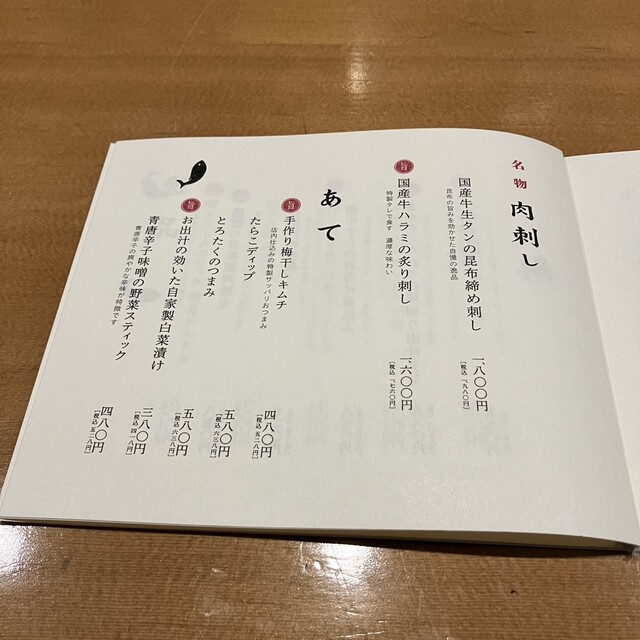 名物 肉刺し
国産牛生タンの昆布締め刺し
昆布の旨みを効かせた自慢の逸品
一、八〇〇円
[税込 一、九八〇円]
旨
国産牛ハラミの炙り刺し
特製タレで食す 濃厚な味わい
一、六〇〇円
[税込 一、七六〇円]
あて
旨
手作り梅干しキムチ
店内仕込みの特製サッパリおつまみ
四八〇円
[税込 五二八円]
たらこディップ
五八〇円
[税込 六三八円]
とろたくのつまみ
五八〇円
[税込 六三八円]
旨
お出汁の効いた自家製白菜漬け
三八〇円
[税込 四一八円]
青唐辛子味噌の野菜スティック
青唐辛子の爽やかな辛味が特徴です
四八〇円
[税込 五二八円]